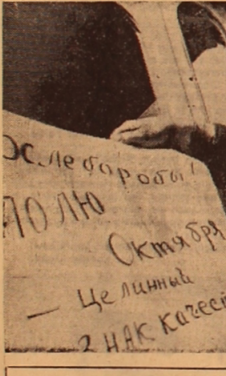 ОСлебороды!
ПОЛЮ
Октября
— Целинный
ЗНАК качес